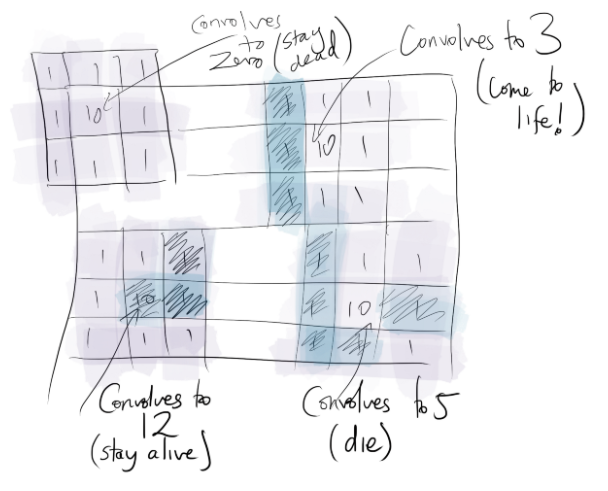 Convolves
to
Zero (stay
dead)
Convolves to 3
(come to
life!)
1 1 1
1 10 1
1 1 1
1 1 1
1 10 1
1 1 1
1 1 1
1 10 1
1 1 1
1 1 1
1 10 1
1 1 1
Convolves to
12
(stay alive)
Convolves to 5
(die)